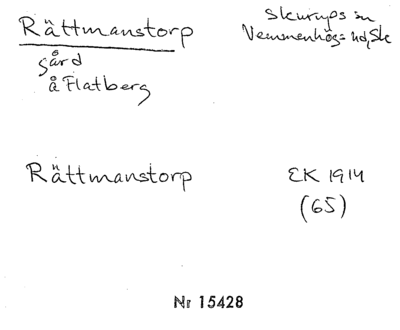 Rättmanstorp
Skurups sn
Vemmenhögs hd, Sk
gård
å Flatberg
Rättmanstorp
EK 1914
(65)
Nr 15428